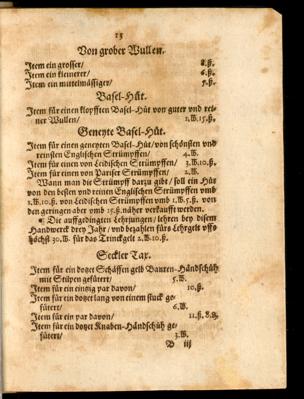 15
Von grober Wullen.
Item ein grosser/ 8.ß.
Item ein kleinerer/ 6.ß.
Item ein mittelmässiger/ 7.ß.
Basel-Hüt.
Item für einen klopfften Basel-Hüt von guter vnd rei-
ner Wullen/ 1.W.15.ß.
Geneyte Basel-Hüt.
Item für einen geneyten Basel-Hüt/ von schönsten vnd
reinsten Englischen Strümpffen/ 4.W.
Item für einen von Leidischen Strümpffen/ 3.W.10.ß.
Item für einen von Pariser Strümpffen/ 2.W.
Wann man die Strümpff darzu gibt/ soll ein Hüt
von den besten vnd reinen Englischen Strümpffen vmb
1.W.10.ß. von Leidischen Strümpffen vmb 1.W.5.ß. von
den geringen aber vmb 15.ß. näher verkaufft werden.
¶ Die auffgedingten Lehrjungen/ lehren bey disem
Handwerck drey Jahr/ vnd bezahlen fürs Lehrgelt vffs
höchst 30.W. für das Trinckgelt 2.W.10.ß.
Seckler Tax.
Item für ein dotzet Schäffen gelb Bauren-Händschüh
mit Stüpen gefütert/ 5.W.
Item für ein eintzig par davon/ 10.ß.
Item für ein dotzet lang von einem stuck ge-
fütert/ 6.W.
Item für ein par davon/ 11.ß.8.
Item für ein dotzet Knaben-Händschüh ge-
fütert/ 3.W.
D iij